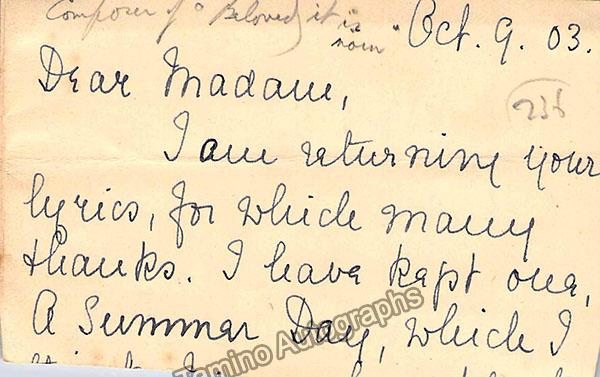 Composer of "Beloved, it is morn"
Oct. 9. 03.
Dear Madam,
236
I am returning your
lyrics, for which many
thanks. I have kept one,
A Summer Day, which I
Tamino Autographs